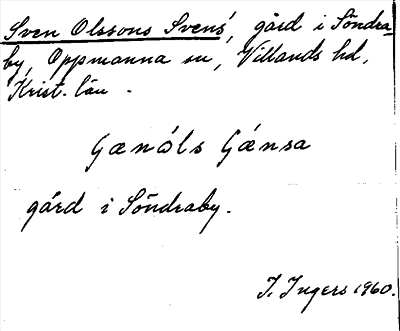 Sven Olssons Svens', gård i Söndra-
by, Oppmanna sn, Villands hd,
Krist. län.
Gænáls Gǽnsa
gård i Söndraby.
I. Ingers 1960.